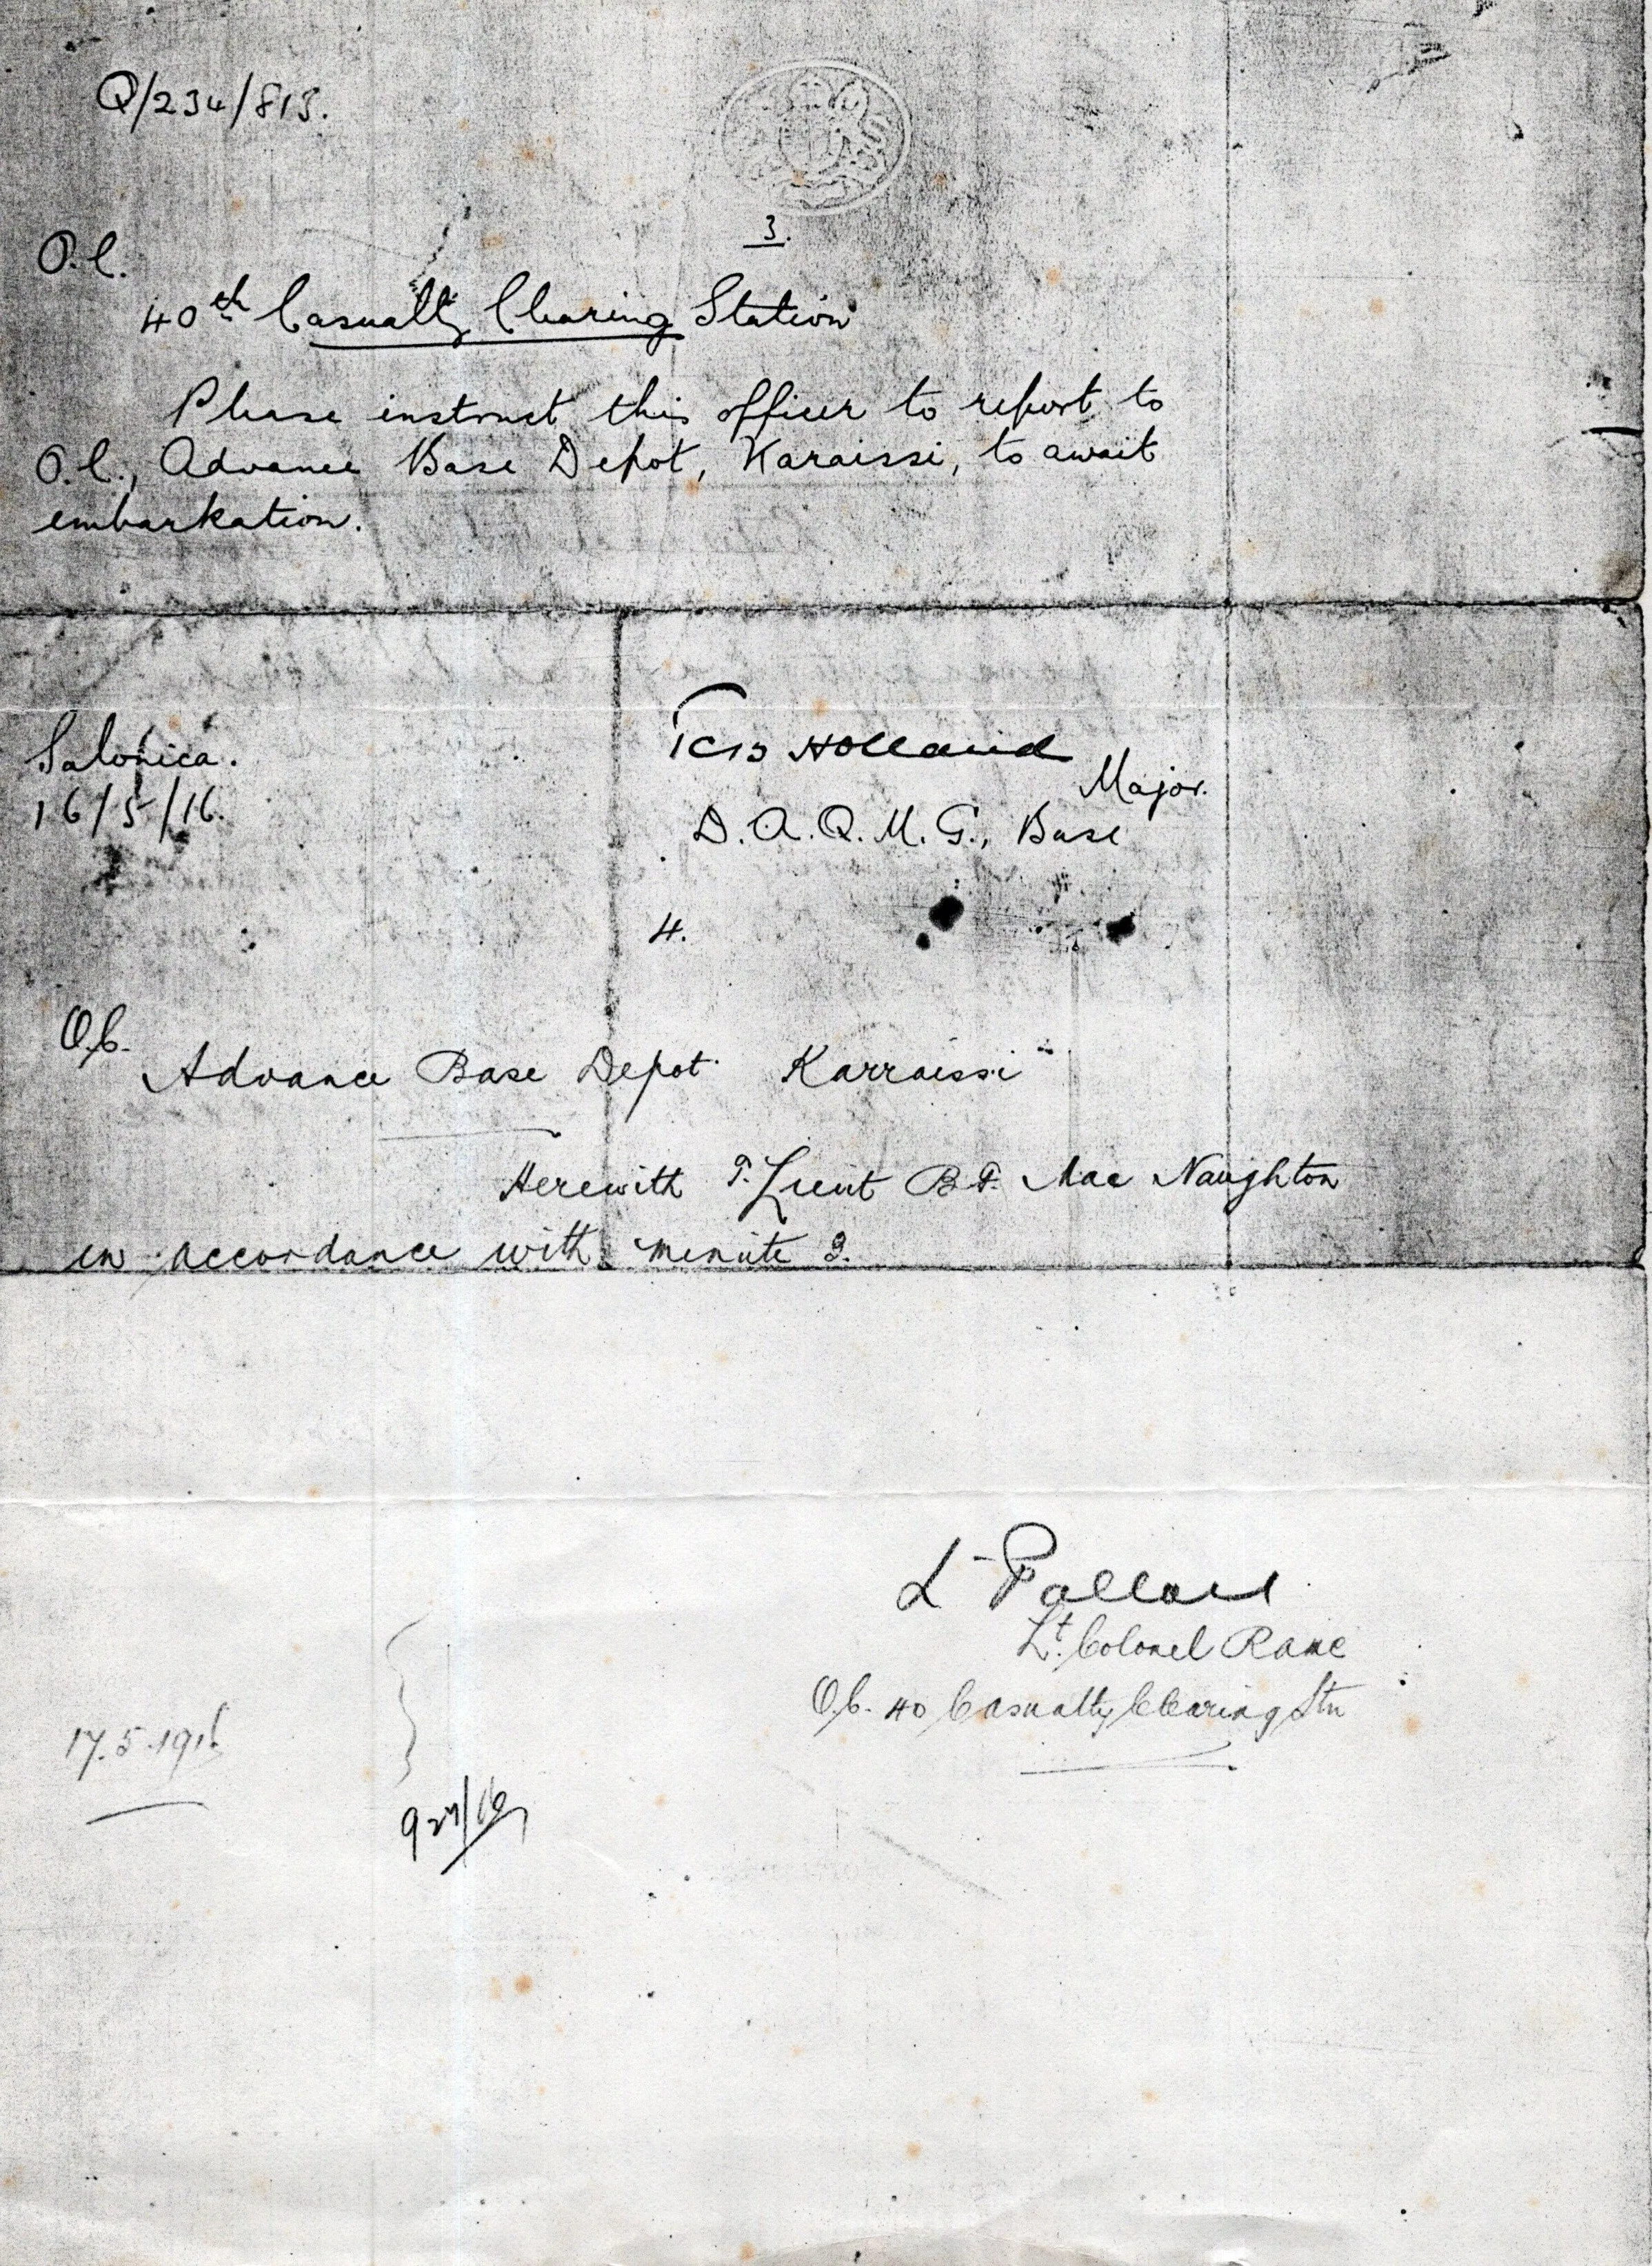 Q/234/813.
3.
O.C.
40th Casualty Clearing Station
Please instruct this officer to report to
O.C., Advance Base Depot, Karaissi, to await
embarkation.
Holland
Major.
Salonica.
16/5/16.
D.A.Q.M.G., Base
4.
O.C.
Advance Base Depot Karraissi
Herewith T. Lieut B.F. Mac Naughton
in accordance with minute 3.
Lt. Colonel RAMC
O.C. 40 Casualty Clearing Stn
17.5.1916